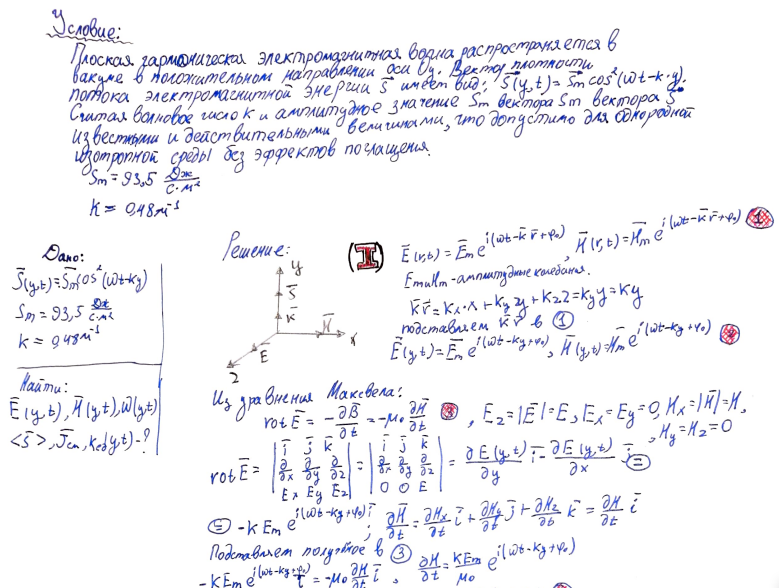 Условие:
Плоская гармоническая электромагнитная волна распространяется в
вакуме в положительном направлении оси Oy. Вектор плотности
потока электромагнитной энергии S⃗ имеет вид: S⃗(y,t) = S⃗m cos²(ωt-k·y).
Считая волновое число k и амплитудное значение Sm вектора Sm вектора S⃗
известными и действительными величинами, что допустимо для однородной
изотропной среды без эффектов поглащения.
Sm = 93,5 Дж/с·м²
k = 0,48 м⁻¹
Дано:
S̅(y,t) = S̅m cos²(ωt-ky)
Sm = 93,5 Дж/с·м²
k = 0,48 м⁻¹
Найти:
E̅(y,t), H̅(y,t), ω(y,t)
<S̅>, J̅см, Kед(y,t) - ?
Решение:
y
S̅
K̅
H̅
x
E
z
(I)
E̅(r,t) = E̅m e^i(ωt-k̅r̅+φ₀), H̅(r,t) = H̅m e^i(ωt-k̅r̅+φ₀) 1
Em и Hm - амплитудные колебания.
k̅r̅ = kx·x + ky y + kz z = ky y = ky
подставляем k̅r̅ в 1
E̅(y,t) = E̅m e^i(ωt-ky+φ₀), H̅(y,t) = H̅m e^i(ωt-ky+φ₀)
Из уравнения Максвела:
rot E̅ = -∂B̅/∂t = -μ₀ ∂H̅/∂t, Ez = |E̅| = E, Ex = Ey = 0, Hx = |H̅| = H,
Hy = Hz = 0
rot E̅ = | i̅ j̅ k̅ ; ∂/∂x ∂/∂y ∂/∂z ; Ex Ey Ez | = | i̅ j̅ k̅ ; ∂/∂x ∂/∂y ∂/∂z ; 0 0 E | = ∂E(y,t)/∂y i̅ - ∂E(y,t)/∂x j̅ =
= -k Em e^i(ωt-ky+φ₀) i̅; ∂H̅/∂t = ∂Hx/∂t i̅ + ∂Hy/∂t j̅ + ∂Hz/∂t k̅ = ∂H/∂t i̅
Подставляем полученое в 3
-kEm e^i(ωt-ky+φ₀) i̅ = -μ₀ ∂H/∂t i̅, ∂H/∂t = kEm/μ₀ e^i(ωt-ky+φ₀)